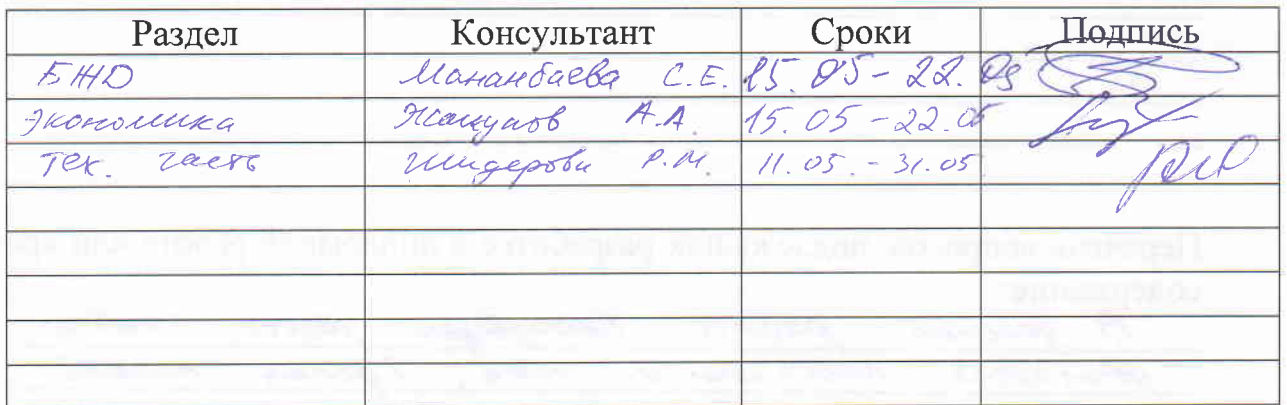 Раздел Консультант Сроки Подпись
БЖД Мананбаева С.Е. 15.05-22.05
Экономика А.А. 15.05-22.05
Тех. часть Р.М. 11.05.-31.05